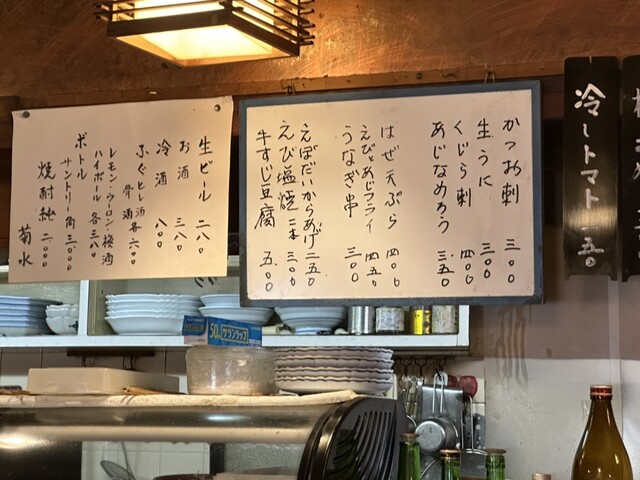 冷しトマト 一五〇
かつお刺 三〇〇
生うに 三〇〇
くじら刺 四〇〇
あじなめろう 三五〇
はぜ天ぷら 四〇〇
えびとあじフライ 四五〇
うなぎ串 三〇〇
えぼだいからあげ 二五〇
えび塩焼 二本 三〇〇
牛すじ豆腐 五〇〇
生ビール 二八〇
お酒 三八〇
冷酒 八〇〇
ふぐヒレ酒 骨酒 各六〇〇
レモン・ウーロン・梅酒
ハイボール 各三八〇
ボトル
サントリー角 三〇〇〇
焼酎 二〇〇〇
菊水
50m サランラップ